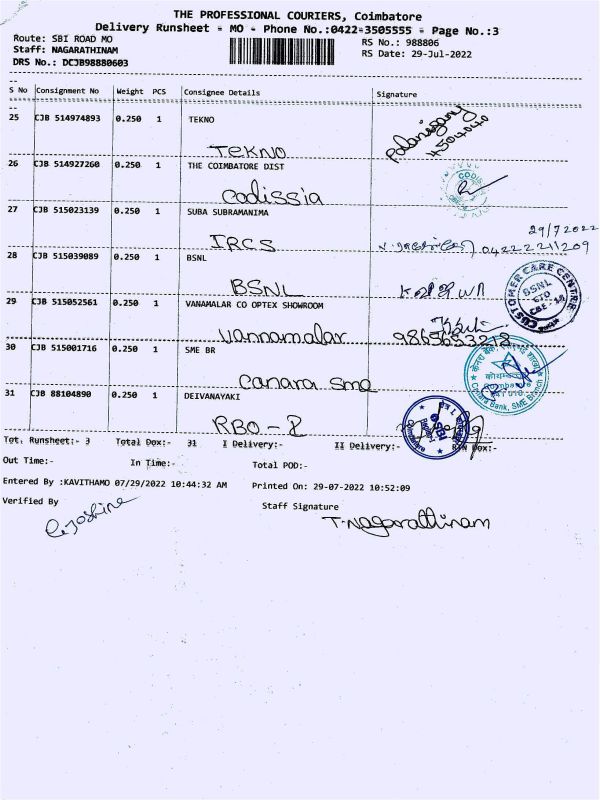 THE PROFESSIONAL COURIERS, Coimbatore
Delivery Runsheet - MO - Phone No.:0422-3505555 - Page No.:3
Route: SBI ROAD MO RS No.: 988806
Staff: NAGARATHINAM RS Date: 29-Jul-2022
DRS No.: DCJB98880603
S No Consignment No Weight PCS Consignee Details Signature
25 CJB 514974893 0.250 1 TEKNO
TEKNO
4504040
26 CJB 514927260 0.250 1 THE COIMBATORE DIST
Codissia
CODIS
27 CJB 515023139 0.250 1 SUBA SUBRAMANIMA
29/7/2022
IRCS 04222211209
28 CJB 515039089 0.250 1 BSNL
BSNL
CUSTOMER CARE CENTRE
BSNL
29 CJB 515052561 0.250 1 VANAMALAR CO OPTEX SHOWROOM
Vannamalar 9865653218
30 CJB 515001716 0.250 1 SME BR
Canara sme
Canara Bank, SME Branch
31 CJB 88104890 0.250 1 DEIVANAYAKI
RBO-2
SBI
Tot. Runsheet:- 3 Total Dox:- 31 I Delivery:- II Delivery:- RTN Dox:-
Out Time:- In Time:- Total POD:-
Entered By :KAVITHAMO 07/29/2022 10:44:32 AM Printed On: 29-07-2022 10:52:09
Verified By Staff Signature
T. Nagarathinam